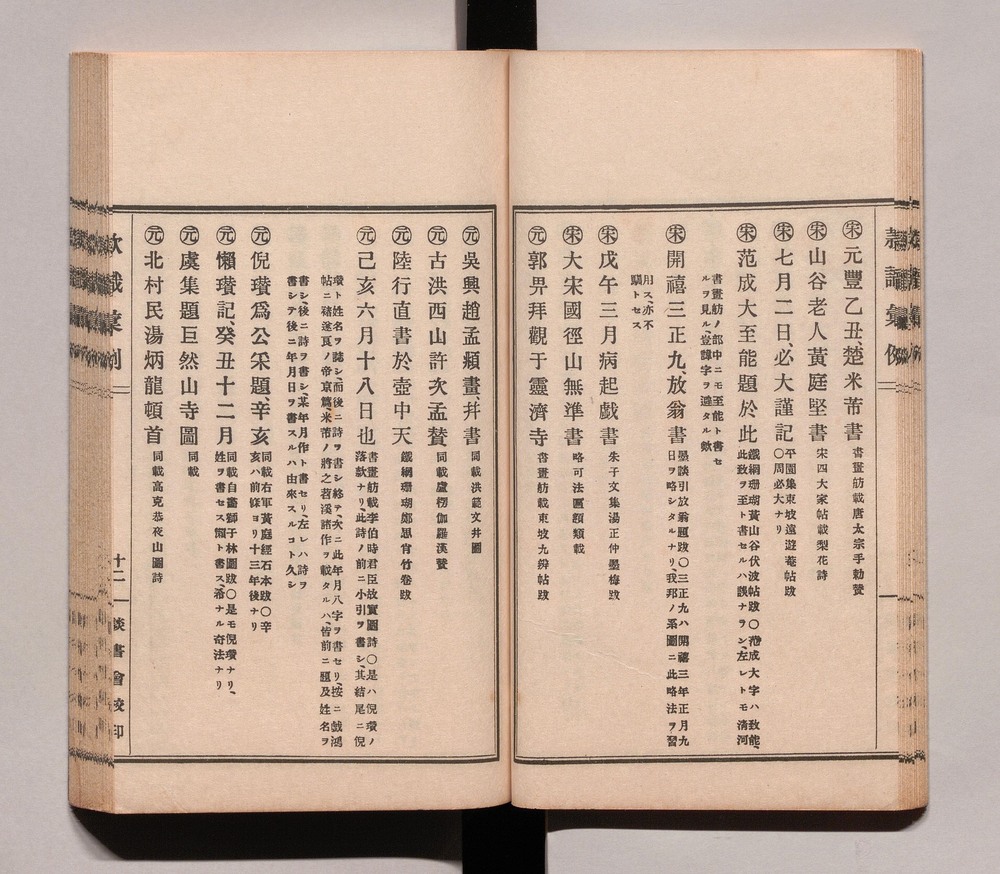 宋 元豐乙丑、楚米芾書 書畫舫載唐太宗手勅贊
宋 山谷老人黃庭堅書 宋四大家帖載梨花詩
宋 七月二日、必大謹記 平園集東坡遠遊菴帖跋
〇周必大ナリ
宋 范成大至能題於此 鐵網珊瑚黃山谷伏波帖跋〇范成大字ハ致能、
此致ヲ至ト書セルハ誤ナラン、左レトモ清河
書畫舫ノ部中ニモ至能ト書セ
ルヲ見ル、豈諱字ヲ避タル歟
宋 開禧三正九、放翁書 墨談引放翁題跋〇三正九ハ開禧三年正月九
日ヲ略シタルナリ、我邦ノ系圖ニ此略法ヲ習
用ス、亦不
騙トセス
宋 戊午三月病起戲書 朱子文集湯正仲墨梅跋
宋 大宋國徑山無準書 略可法匾額類載
元 郭畀拜觀于靈濟寺 書畫舫載東坡九辯帖跋
元 吳興趙孟頫畫、幷書 同載洪範文井圖
元 古洪西山許次孟贊 同載盧楞伽羅漢贊
元 陸行直書於壺中天 鐵網珊瑚鄭思肖竹卷跋
元 己亥六月十八日也 書畫舫載李伯時君臣故實圖詩〇是ハ倪瓚ノ
落款ナリ、此詩ノ前ニ小引ヲ書シ、其結尾ニ倪
瓚ト姓名ヲ誌シ、而後ニ詩ヲ書シ終テ、次ニ此年月八字ヲ書セリ、按ニ戲鴻
帖ニ禇遂良ノ帝京篇、米芾ノ將之苕溪諸作ヲ載タルハ、皆前ニ題及姓名ヲ
書シ、後ニ詩ヲ書シ、某年月作ト書セリ、左レハ詩ヲ
書シテ後ニ年月日ヲ書スルハ由來スルコト久シ
元 倪瓚爲公采題、辛亥 同載右軍黃庭經石本跋〇辛
亥ハ前條ヨリ十三年後ナリ
元 懶瓚記、癸丑十二月 同載自畫獅子林圖跋〇是モ倪瓚ナリ、
姓ヲ書セス懶ト書ス、洽ナル奇法ナリ
元 虞集題巨然山寺圖 同載
元 北村民湯炳龍頓首 同載高克恭夜山圖詩
十二 談書會校印